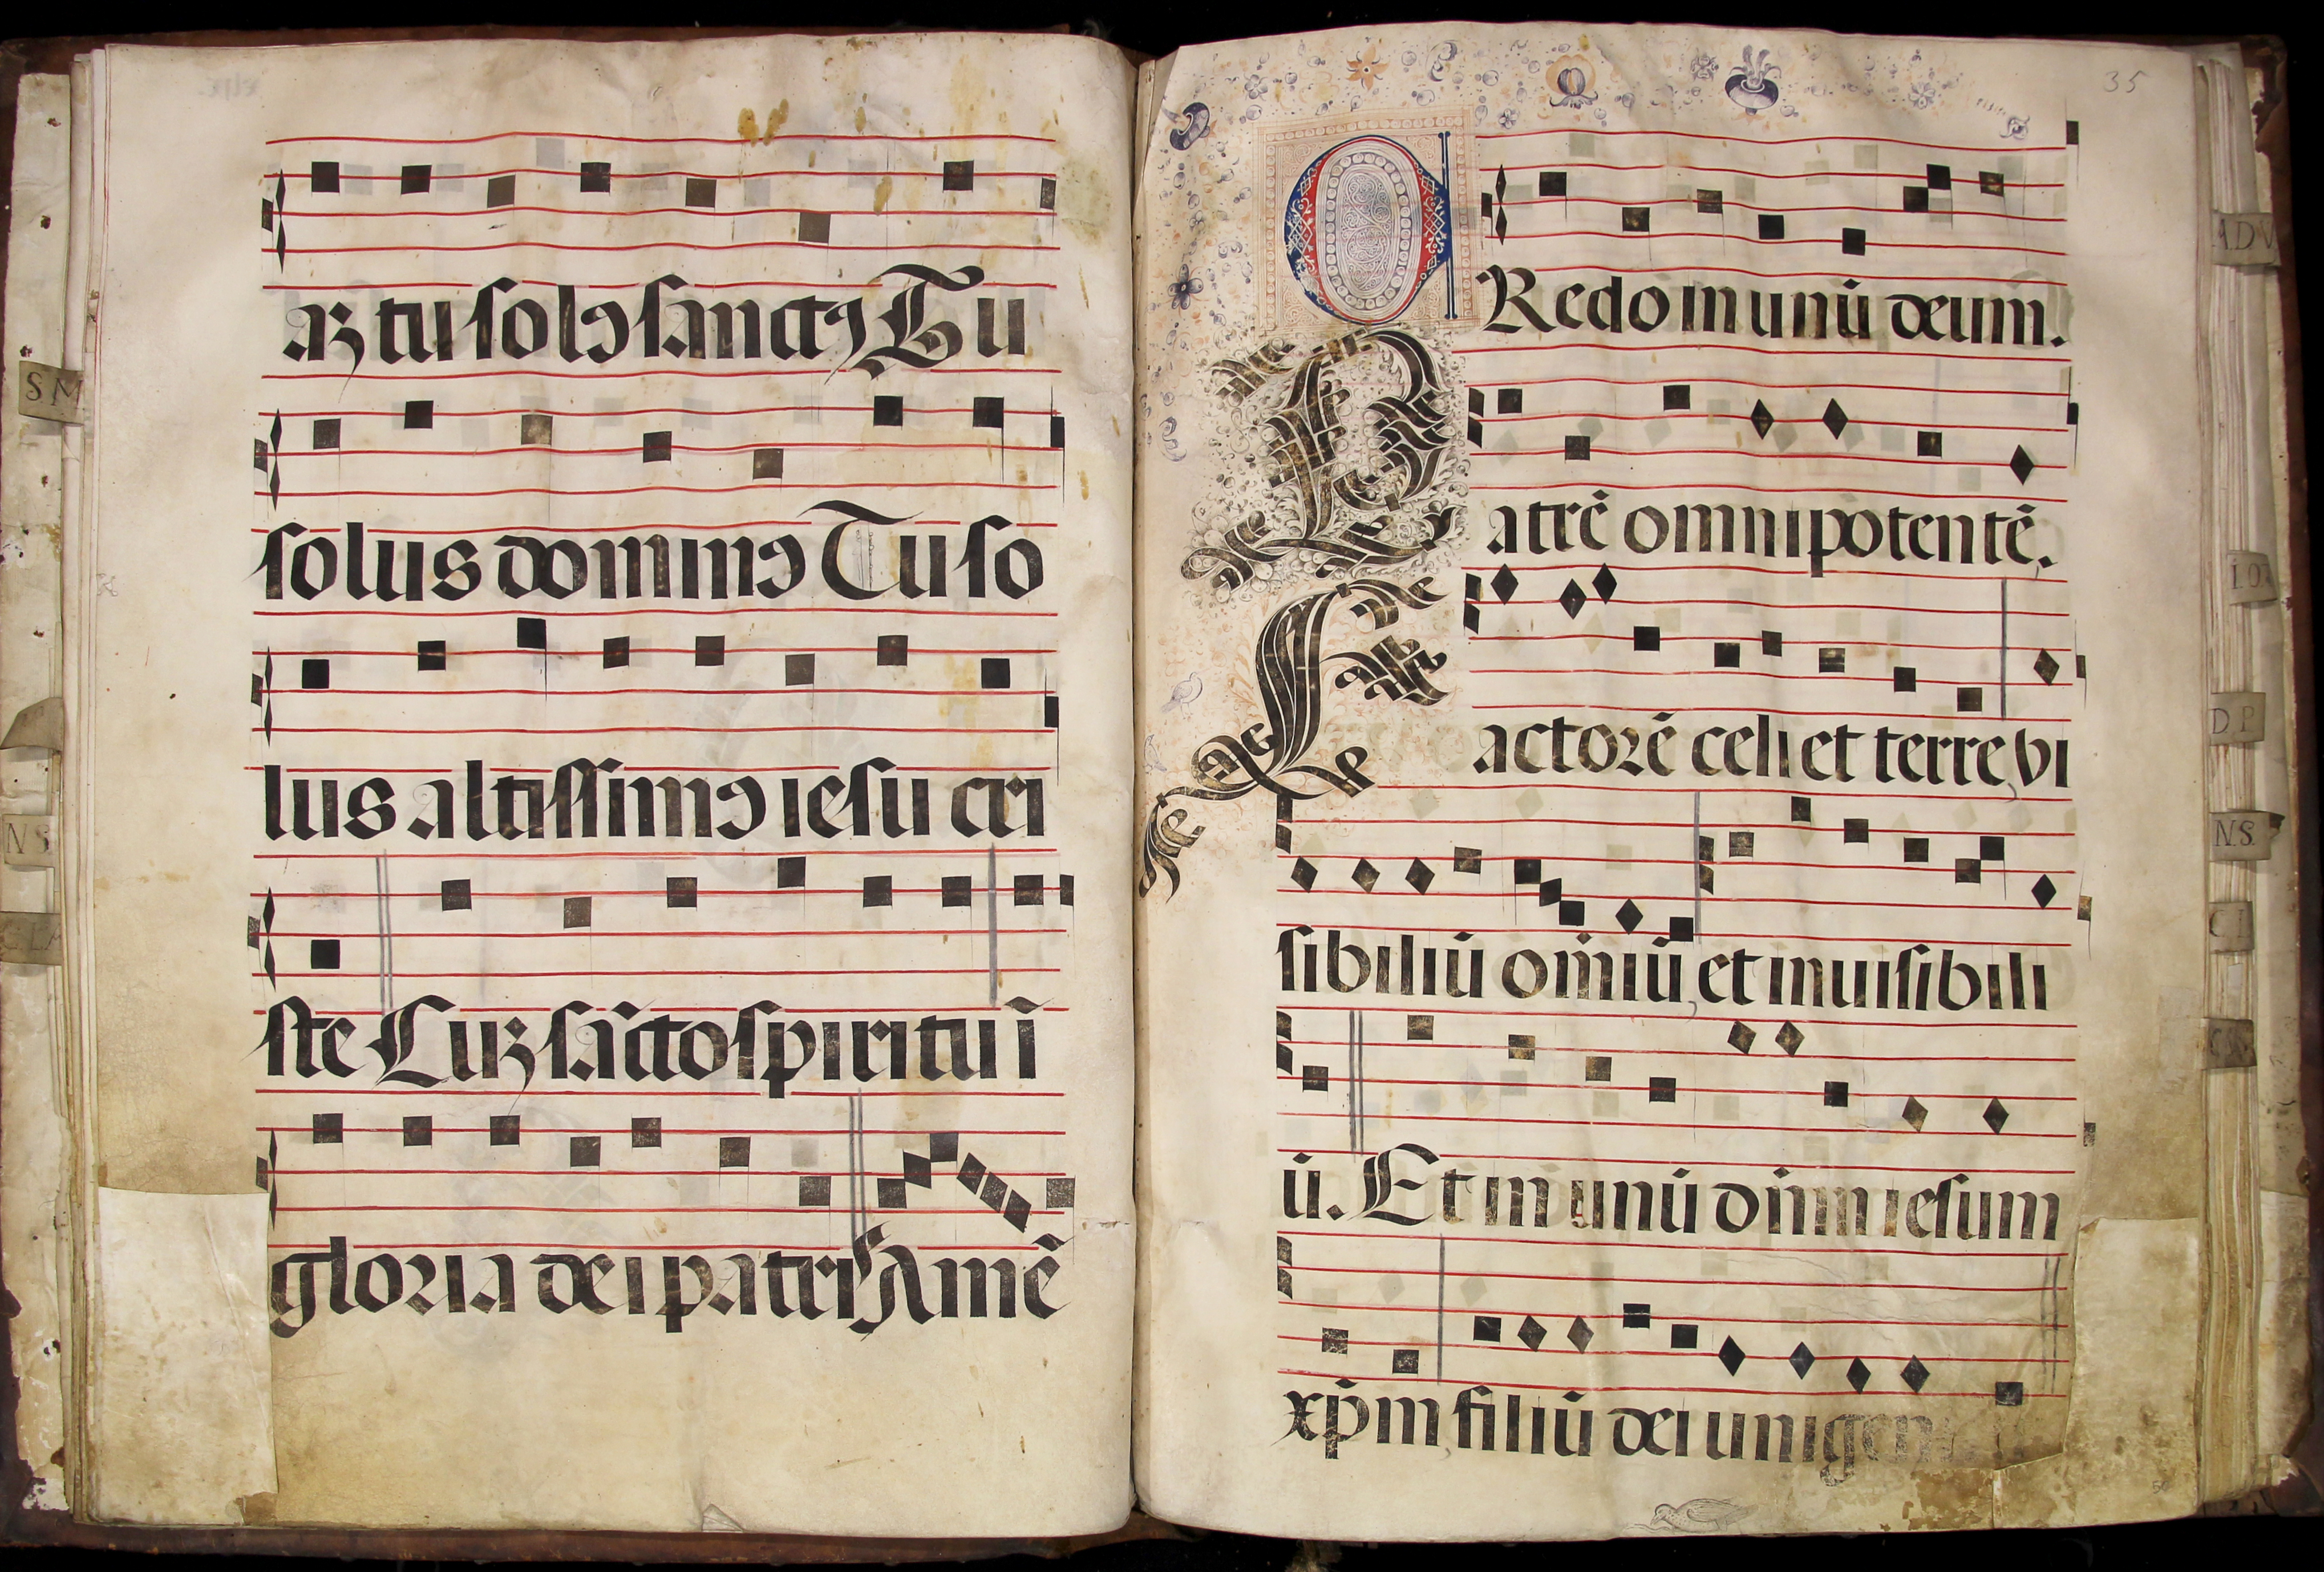 aꝫ tu solꝰ sanctꝰ Tu
solus dominꝰ Tu so
lus altissimꝰ iesu cri
ste Cuꝫ sācto spiritu ī
gloria dei patris Amē
35
CRedo in unū deum.
Patrē omnipotentē.
Factorē celi et terre, vi
sibiliū om̄iū, et inuisibili
ū. Et in unū dn̄m iesum
xp̄m, filiū dei unigen
S M
N S
ADV
D P
N.S.